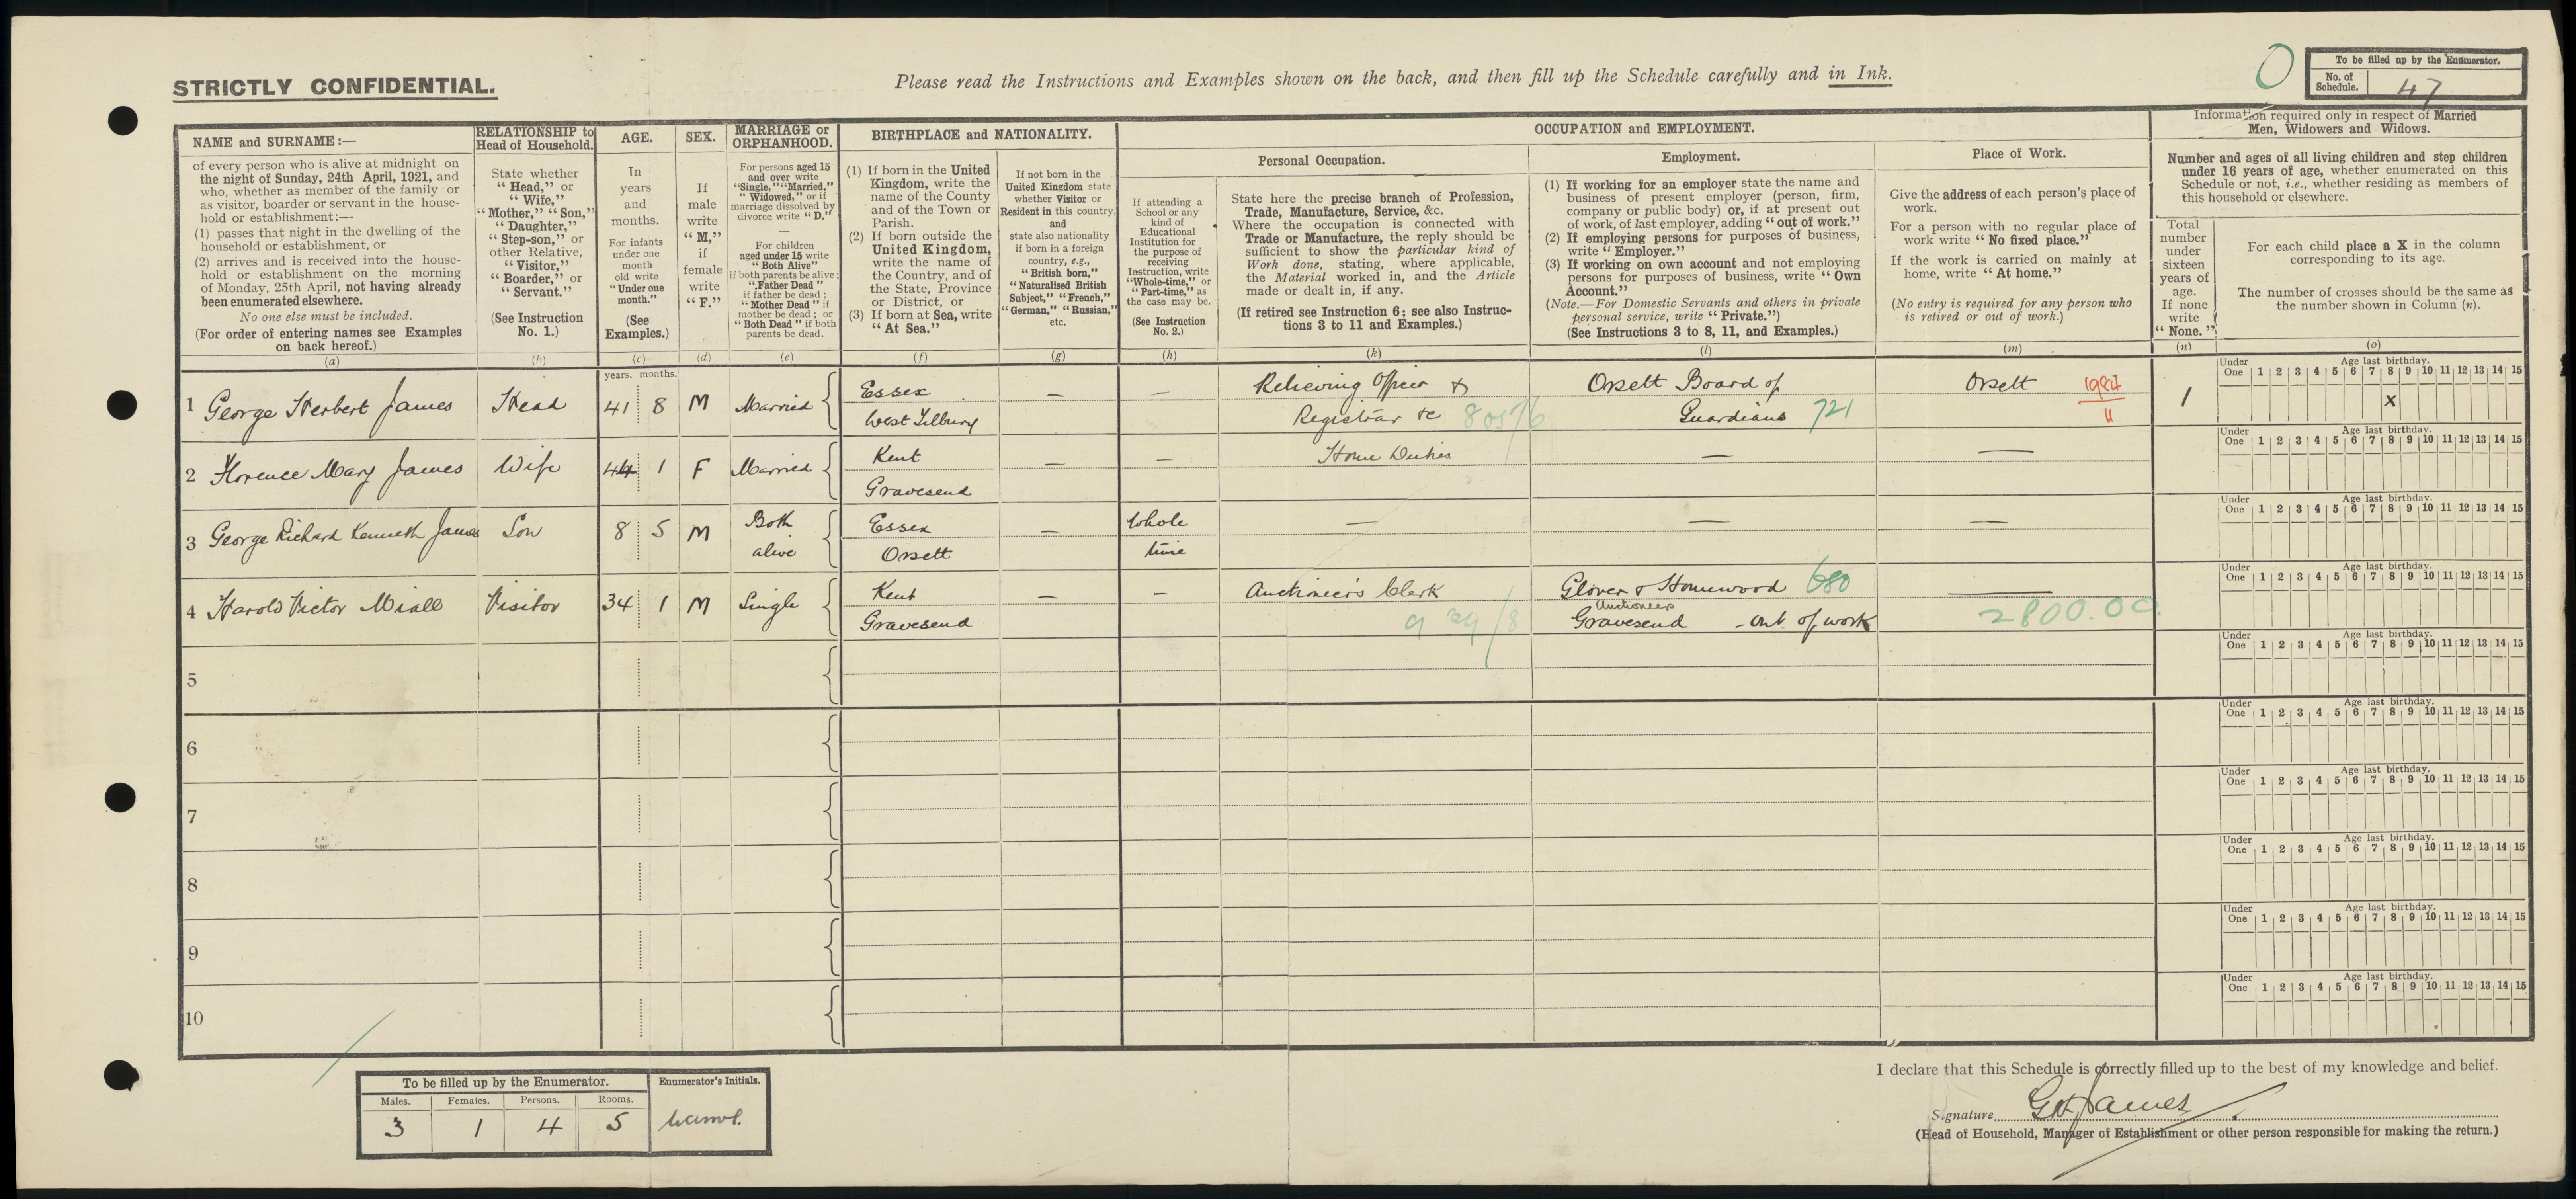 STRICTLY CONFIDENTIAL.
Please read the Instructions and Examples shown on the back, and then fill up the Schedule carefully and in Ink.
0
To be filled up by the Enumerator.
No. of Schedule. 47
NAME and SURNAME:—
of every person who is alive at midnight on
the night of Sunday, 24th April, 1921, and
who, whether as member of the family or
as visitor, boarder or servant in the house-
hold or establishment:—
(1) passes that night in the dwelling of the
household or establishment, or
(2) arrives and is received into the house-
hold or establishment on the morning
of Monday, 25th April, not having already
been enumerated elsewhere.
No one else must be included.
(For order of entering names see Examples
on back hereof.)
(a)
RELATIONSHIP to
Head of Household.
State whether
"Head," or
"Wife,"
"Mother," "Son,"
"Daughter,"
"Step-son," or
other Relative,
"Visitor,"
"Boarder," or
"Servant."
(See Instruction
No. 1.)
(b)
AGE.
In
years
and
months.
For infants
under one
month
old write
"Under one
month."
(See
Examples.)
(c)
SEX.
If
male
write
"M,"
if
female
write
"F."
(d)
MARRIAGE or
ORPHANHOOD.
For persons aged 15
and over write
"Single," "Married,"
"Widowed," or if
marriage dissolved by
divorce write "D."
—
For children
aged under 15 write
"Both Alive"
if both parents be alive;
"Father Dead"
if father be dead;
"Mother Dead" if
mother be dead; or
"Both Dead" if both
parents be dead.
(e)
BIRTHPLACE and NATIONALITY.
(1) If born in the United
Kingdom, write the
name of the County
and of the Town or
Parish.
(2) If born outside the
United Kingdom,
write the name of
the Country, and of
the State, Province
or District, or
(3) If born at Sea, write
"At Sea."
(f)
If not born in the
United Kingdom state
whether Visitor or
Resident in this country,
and
state also nationality
if born in a foreign
country, e.g.,
"British born,"
"Naturalised British
Subject," "French,"
"German," "Russian,"
etc.
(g)
OCCUPATION and EMPLOYMENT.
If attending a
School or any
kind of
Educational
Institution for
the purpose of
receiving
Instruction, write
"Whole-time," or
"Part-time," as
the case may be.
(See Instruction
No. 2.)
(h)
Personal Occupation.
State here the precise branch of Profession,
Trade, Manufacture, Service, &c.
Where the occupation is connected with
Trade or Manufacture, the reply should be
sufficient to show the particular kind of
Work done, stating, where applicable,
the Material worked in, and the Article
made or dealt in, if any.
(If retired see Instruction 6; see also Instruc-
tions 3 to 11 and Examples.)
(k)
Employment.
(1) If working for an employer state the name and
business of present employer (person, firm,
company or public body) or, if at present out
of work, of last employer, adding "out of work."
(2) If employing persons for purposes of business,
write "Employer."
(3) If working on own account and not employing
persons for purposes of business, write "Own
Account."
(Note.—For Domestic Servants and others in private
personal service, write "Private.")
(See Instructions 3 to 8, 11, and Examples.)
(l)
Place of Work.
Give the address of each person's place of
work.
For a person with no regular place of
work write "No fixed place."
If the work is carried on mainly at
home, write "At home."
(No entry is required for any person who
is retired or out of work.)
(m)
Information required only in respect of Married
Men, Widowers and Widows.
Number and ages of all living children and step children
under 16 years of age, whether enumerated on this
Schedule or not, i.e., whether residing as members of
this household or elsewhere.
Total
number
under
sixteen
years of
age.
If none
write
"None."
(n)
For each child place a X in the column
corresponding to its age.
The number of crosses should be the same as
the number shown in Column (n).
(o)
years. months.
Under One Age last birthday. 1 2 3 4 5 6 7 8 9 10 11 12 13 14 15
1 George Herbert James Head 41 8 M Married Essex — — Relieving Officer & Orsett Board of Orsett 1 X
West Tilbury Registrar &c 805/6 Guardians 721
Under One Age last birthday. 1 2 3 4 5 6 7 8 9 10 11 12 13 14 15
2 Florence Mary James Wife 44 1 F Married Kent — — Home Duties — —
Gravesend
Under One Age last birthday. 1 2 3 4 5 6 7 8 9 10 11 12 13 14 15
3 George Richard Kenneth James Son 8 5 M Both Essex — Whole — — —
alive Orsett time
Under One Age last birthday. 1 2 3 4 5 6 7 8 9 10 11 12 13 14 15
4 Harold Victor Miall Visitor 34 1 M Single Kent — — Auctineer's Clerk Glover & Homewood 680 —
Auctioneers
Gravesend 939/8 Gravesend - out of work 2800.00
Under One Age last birthday. 1 2 3 4 5 6 7 8 9 10 11 12 13 14 15
5
Under One Age last birthday. 1 2 3 4 5 6 7 8 9 10 11 12 13 14 15
6
Under One Age last birthday. 1 2 3 4 5 6 7 8 9 10 11 12 13 14 15
7
Under One Age last birthday. 1 2 3 4 5 6 7 8 9 10 11 12 13 14 15
8
Under One Age last birthday. 1 2 3 4 5 6 7 8 9 10 11 12 13 14 15
9
Under One Age last birthday. 1 2 3 4 5 6 7 8 9 10 11 12 13 14 15
10
To be filled up by the Enumerator.
Males. Females. Persons. Rooms.
3 1 4 5
Enumerator's Initials.
I declare that this Schedule is correctly filled up to the best of my knowledge and belief.
Signature GH James
(Head of Household, Manager of Establishment or other person responsible for making the return.)